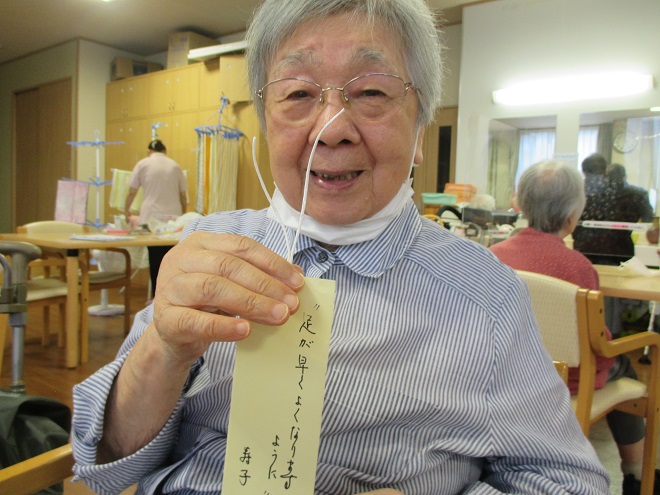 "足が早くよくなります
ように"
寿子